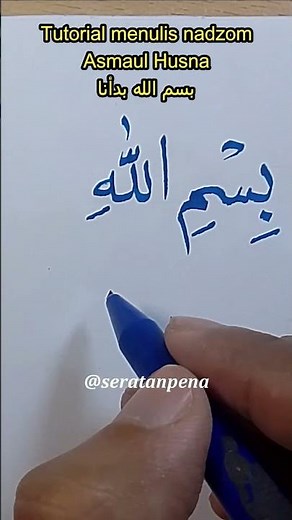 Tutorial menulis nadzom
Asmaul Husna
بسم الله بدأنا
بِسْمِ اللّٰهِ
@seratanpena